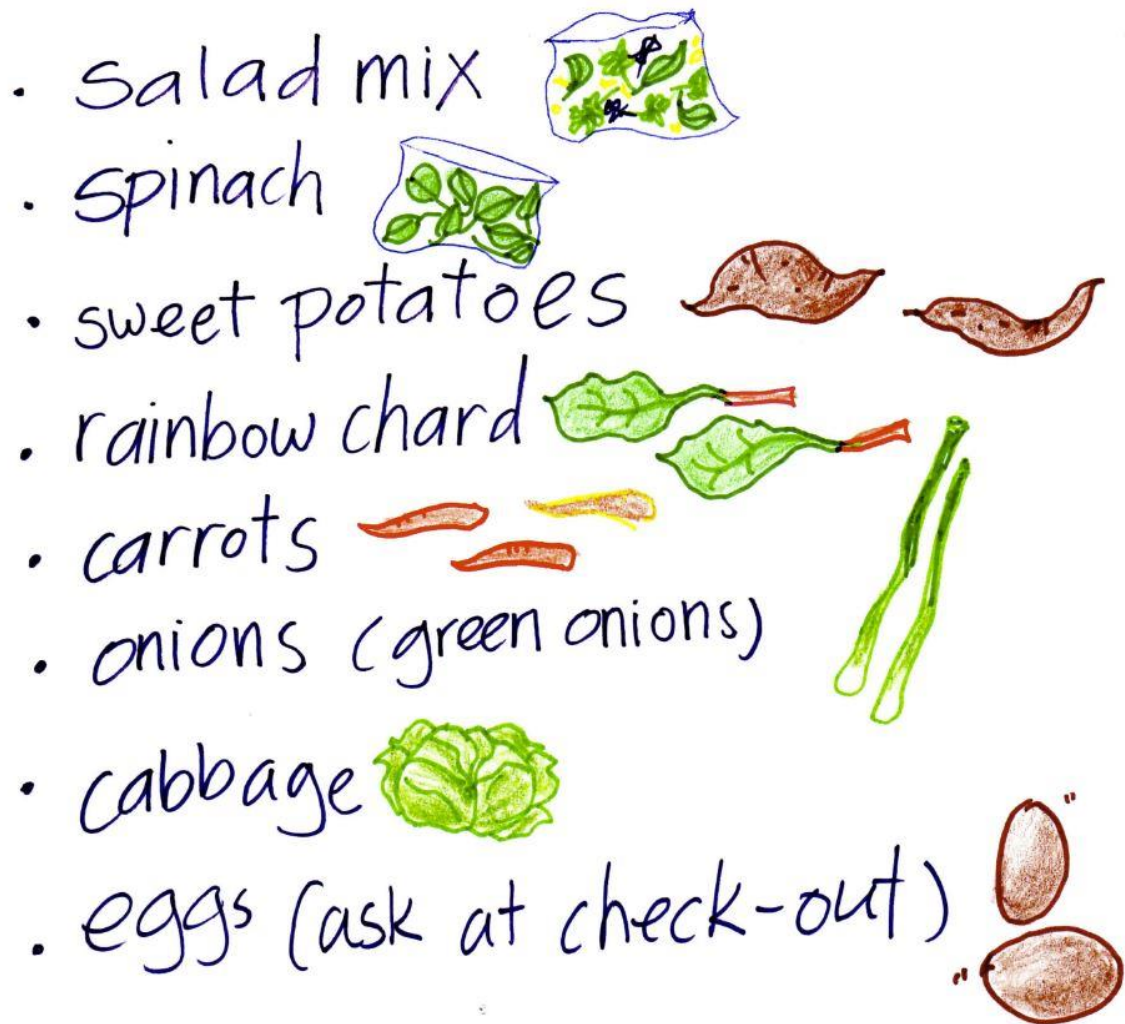 · salad mix
· spinach
· sweet potatoes
· rainbow chard
· carrots
· onions (green onions)
· cabbage
· eggs (ask at check-out)